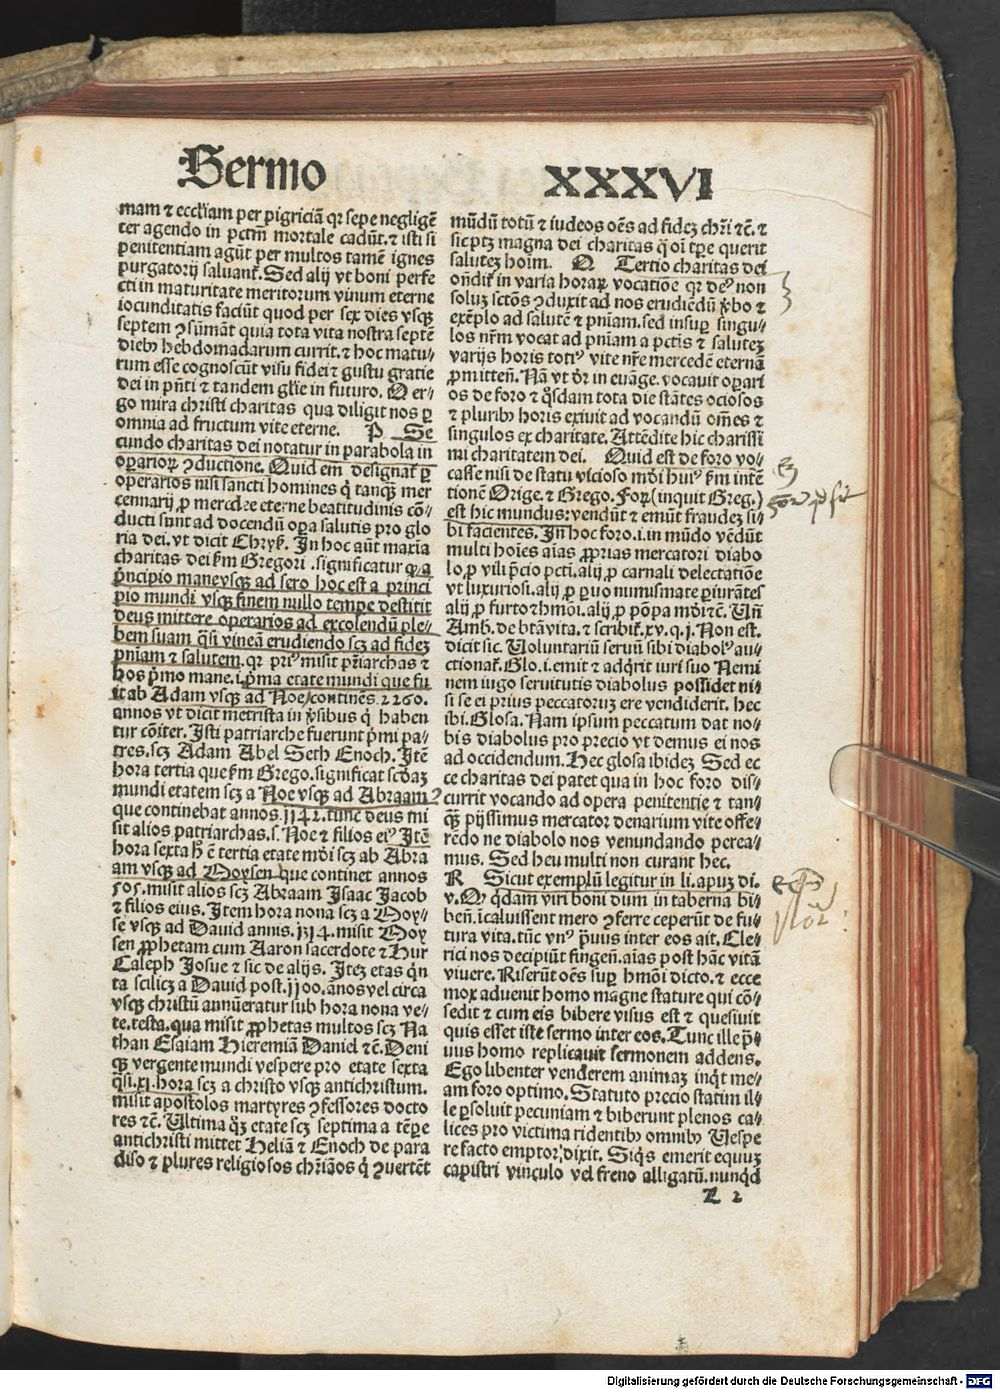 Sermo XXXVI
mam ⁊ eccl'iam per pigriciã qr sepe negligẽ
ter agendo in pctm̃ mortale cadũt. ⁊ isti si
penitentiam agũt per multos tamẽ ignes
purgatorij saluant᷑. Sed alij vt boni perfe
cti in maturitate meritorum vinum eterne
iocunditatis faciũt quod per sex dies vsqꝫ
septem ꝯsũmãt quia tota vita nostra septẽ
dieb᷒ hebdomadarum currit. ⁊ hoc matu⸗
rum esse cognoscũt visu fidei ⁊ gustu gratie
dei in pñti ⁊ tandem gl'ie in futuro. O er⸗
go mira christi charitas qua diligit nos ꝑ
omnia ad fructum vite eterne. P Se
cundo charitas dei notatur in parabola in
oꝑarioꝝ ꝯductione. Quid em̃ designat᷑ ꝑ
operarios nisi sancti homines q̇ tanqꝫ mer
cennarij ꝓ mercede eterne beatitudinis cõ⸗
ducti sunt ad docendũ oꝑa salutis pro glo
ria dei. vt dicit Chryſ. In hoc aũt maxīa
charitas dei ẜm Gregori. significatur q a
p̃ncipio mane vsqꝫ ad sero hoc est a princi
pio mundi vsqꝫ finem nullo tempe destitit
deus mittere operarios ad excolendũ ple⸗
bem suam q̃si vineã erudiendo scꝫ ad fidez
pñiam ⁊ salutem. qr pri᷒ misit pr̃iarchas ⁊
hos p̃mo mane. i. p̃ma etate mundi que fu
it ab Adam vsqꝫ ad Noe/continẽs. 2260.
annos vt dicit metrista in ṽsibus q̇ haben
tur cõiter. Isti patriarche fuerunt p̃mi pa⸗
tres. scꝫ Adam Abel Seth Enoch. Itẽ
hora tertia que ẜm Grego. significat scḋaz
mundi etatem scꝫ a Noe vsqꝫ ad Abraam
que continebat annos. 1142. tunc deus mi
sit alios patriarchas. s. Noe ⁊ filios ei᷒ Itẽ
hora sexta h̃ ẽ tertia etate mõi scꝫ ab Abra
am vsqꝫ ad Moysen que continet annos
505. misit alios scꝫ Abraam Isaac Jacob
⁊ filios eius. Item hora nona scꝫ a Moy⸗
se vsqꝫ ad Dauid annis. 1314. misit Moy
sen ꝓphetam cum Aaron sacerdote ⁊ Hur
Caleph Josue ⁊ sic de alijs. Itez etas q̃n
ta scilicꝫ a Dauid post. 1100. ãnos vel circa
vsqꝫ christũ annũeratur sub hora nona ve⸗
te. testa. qua misit ꝓphetas multos scꝫ Na
than Esaiam Hieremiã Daniel ⁊c̃. Deni
qꝫ vergente mundi vespere pro etate sexta
q̃si. xi. hora scꝫ a christo vsqꝫ antichristum.
misit apostolos martyres ꝯfessores docto
res ⁊c̃. Ultima q̃ꝫ etate scꝫ septima a tẽpe
antichristi mittet Heliã ⁊ Enoch de para
diso ⁊ plures religiosos chr̃iãos q̇ ꝯuertẽt
mũdũ totũ ⁊ iudeos oẽs ad fidez chr̃i ⁊c̃. ⁊
sic ptꝫ magna dei charitas q̃ oĩ tꝑe querit
salutez hoĩm. Q Tertio charitas dei
oñdit᷑ in varia horaꝝ vocatiõe qr de᷒ non
soluz sctõs ꝯduxit ad nos erudiẽdũ ṽbo ⁊
exẽplo ad salutẽ ⁊ pñiam. sed insuꝑ singu⸗
los nr̃m vocat ad pñiam a pctis ⁊ salutez
varijs horis toti᷒ vite nr̃e mercedẽ eternã
ꝓmitteñ. Nã vt ðr in euãge. vocauit oꝑari
os de foro ⁊ q̃sdam tota die stãtes ociosos
⁊ plurib᷒ horis exiuit ad vocandũ om̃es ⁊
singulos ex charitate. Attẽdite hic charissi
mi charitatem dei. Quid est de foro vo⸗
casse nisi de statu vicioso mõi hui᷒ ẜm intẽ
tionẽ Orige. ⁊ Grego. Forũ (inquit Greg.)
est hic mundus: vendũt ⁊ emũt fraudez si⸗
bi facientes. In hoc foro. i. in mũdo vẽdũt
multi hoĩes aĩas ꝓprias mercatori diabo
lo, ꝓ vili p̃cio pcti. alij ꝓ carnali delectatiõe
vt luxuriosi. alij ꝓ ꝑuo numismate ꝑiurãtes
alij ꝓ furto ⁊ hmõi. alij ꝓ põpa mõi ⁊c̃. Uñ
Amb. de btã vita. ⁊ scribit᷑. xv. q. j. Non est.
dicit sic. Voluntariũ seruũ sibi diabol᷒ au⸗
ctionat᷑. Glo. i. emit ⁊ adq̃rit iuri suo Nemi
nem iugo seruitutis diabolus possidet ni⸗
si se ei prius peccatoruz ere vendiderit. hec
ibi. Glosa. Nam ipsum peccatum dat no⸗
bis diabolus pro precio vt demus ei nos
ad occidendum. Hec glosa ibidez Sed ec
ce charitas dei patet qua in hoc foro dis⸗
currit vocando ad opera penitentie ⁊ tan⸗
qꝫ pijssimus mercator denarium vite offe⸗
rẽdo ne diabolo nos venundando perea⸗
mus. Sed heu multi non curant hec.
R Sicut exemplũ legitur in li. apuz di.
v. Q᷒ q̇dam viri boni dum in taberna bi⸗
beñ. icaluissent mero ꝯferre ceperũt de fu⸗
tura vita. tũc vn᷒ p̃uus inter eos ait. Cle⸗
rici nos decipiũt fingeñ. aĩas post hãc vitã
viuere. Riserũt oẽs suꝑ hmõi dicto. ⁊ ecce
mox aduenit homo magne stature qui cõ⸗
sedit ⁊ cum eis bibere visus est ⁊ quesiuit
quis esset iste sermo inter eos. Tunc ille p̃⸗
uus homo replicauit sermonem addens.
Ego libenter venderem animaz inq̇t me⸗
am foro optimo. Statuto precio statim il⸗
le ꝑsoluit pecuniam ⁊ biberunt plenos ca⸗
lices pro victima ridentib᷒ omnib᷒ Vespe
re facto emptor dixit. Siq̇s emerit equuz
capistri vinculo vel freno alligatũ. nunq̇d
L 2
Digitalisierung gefördert durch die Deutsche Forschungsgemeinschaft - DFG